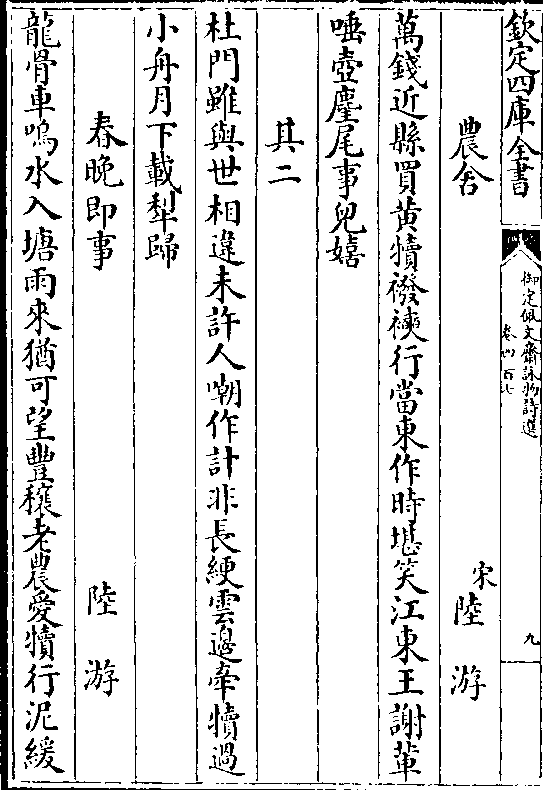 欽定四庫全書
御定佩文齋詠物詩選
卷四百七
九
農舍
宋陸游
萬錢近縣買黃犢襏襫行當東作時堪笑江東王謝輩
唾壺麈尾事兒嬉
其二
杜門雖與世相違未許人嘲作計非長綆雲邊牽犢過
小舟月下載犁歸
春晚即事
陸游
龍骨車鳴水入塘雨來猶可望豐穰老農愛犢行泥緩